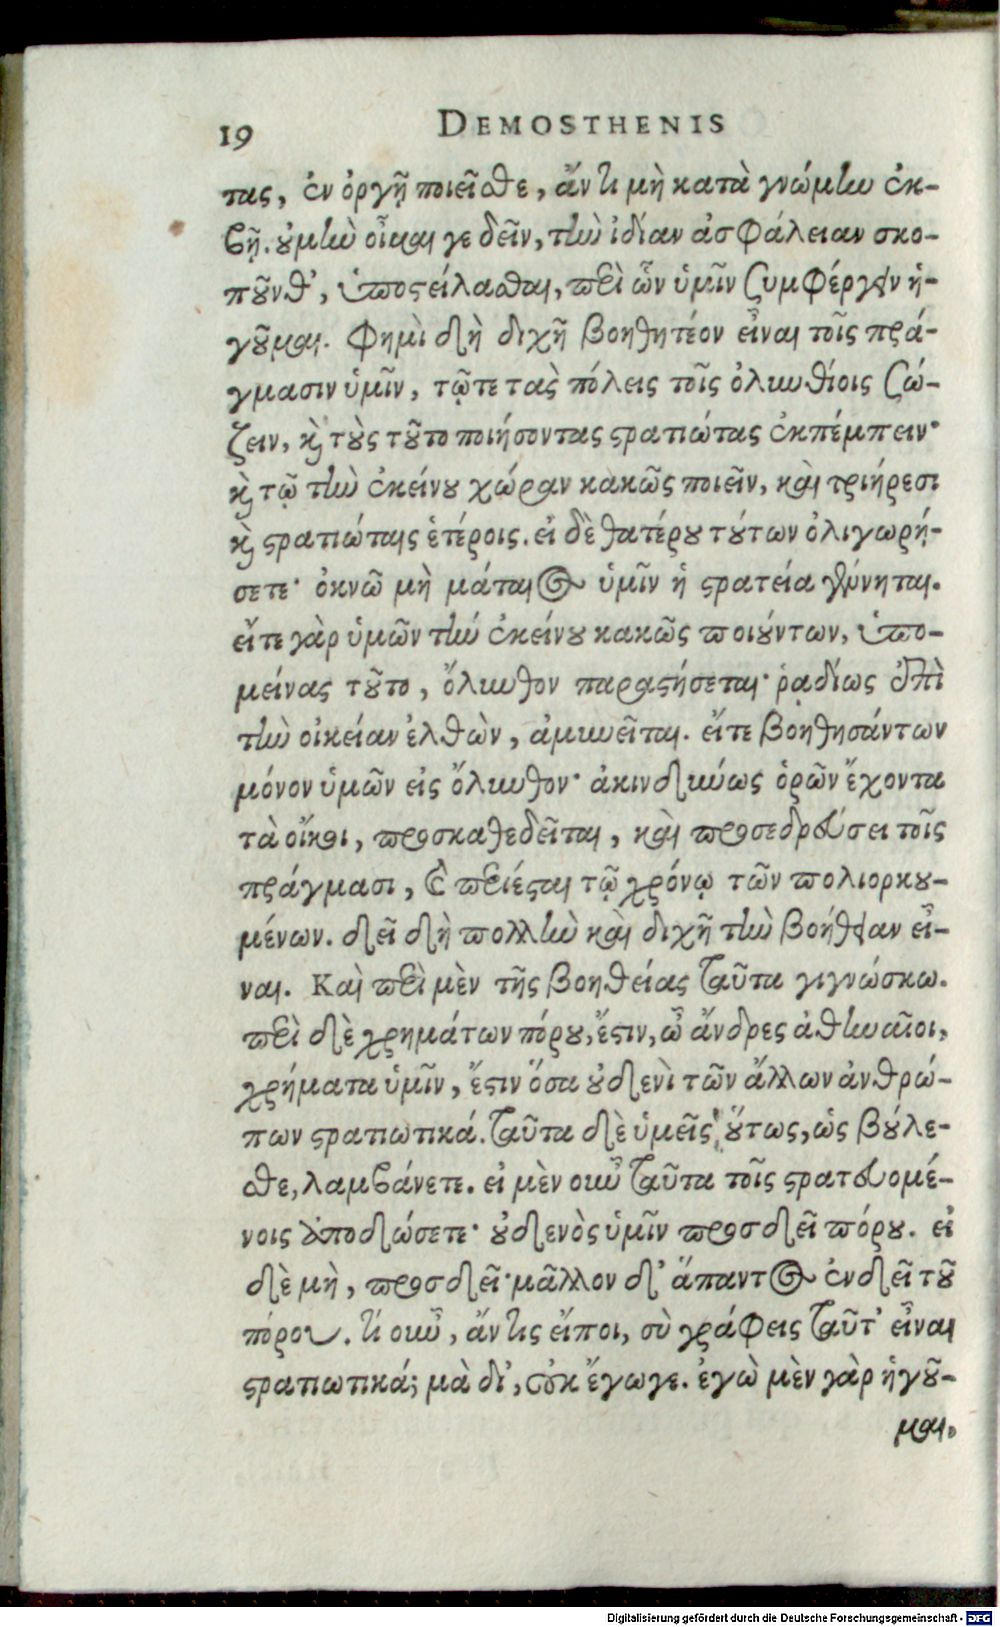 19 DEMOSTHENIS
τας, ἐν ὀργῇ ποιεῖσθε, ἄν τι μὴ κατὰ γνώμην ἐκ-
βῇ. οὐ μὴν οἶμαι γε δεῖν, τὴν ἰδίαν ἀσφάλειαν σκο-
ποῦνθ’, ὑποστείλασθαι, περὶ ὧν ὑμῖν συμφέρειν ἡ-
γοῦμαι. Φημὶ δὴ διχῆ βοηθητέον εἶναι τοῖς πρά-
γμασιν ὑμῖν, τῷ τε τὰς πόλεις τοῖς ὀλυνθίοις σώ-
ζειν, καὶ τοὺς τοῦτο ποιήσοντας στρατιώτας ἐκπέμπειν·
καὶ τῷ τὴν ἐκείνου χώραν κακῶς ποιεῖν, καὶ τριήρεσι
καὶ στρατιώταις ἑτέροις. εἰ δὲ θατέρου τούτων ὀλιγωρή-
σετε· ὀκνῶ μὴ μάταιος ὑμῖν ἡ στρατεία γένηται.
εἴτε γὰρ ὑμῶν τὴν ἐκείνου κακῶς ποιούντων, ὑπο-
μείνας τοῦτο, ὄλυνθον παραστήσεται· ῥᾳδίως ἐπὶ
τὴν οἰκείαν ἐλθὼν, ἀμυνεῖται. εἴτε βοηθησάντων
μόνον ὑμῶν εἰς ὄλυνθον· ἀκινδυνως ὁρῶν ἔχοντα
τὰ οἴκοι, προσκαθεδεῖται, καὶ προσεδρεύσει τοῖς
πράγμασι, καὶ περιέσται τῷ χρόνῳ τῶν πολιορκου-
μένων. δεῖ δὴ πολλὴν καὶ διχῆ τὴν βοήθειαν εἶ-
ναι. Καὶ περὶ μὲν τῆς βοηθείας ταῦτα γιγνώσκω.
περὶ δὲ χρημάτων πόρου, ἔστιν, ὦ ἄνδρες ἀθηναῖοι,
χρήματα ὑμῖν, ἔστιν ὅσα οὐδενὶ τῶν ἄλλων ἀνθρώ-
πων στρατιωτικά. ταῦτα δὲ ὑμεῖς οὕτως, ὡς βούλε-
σθε, λαμβάνετε. εἰ μὲν οὖν ταῦτα τοῖς στρατευομέ-
νοις ἀποδώσετε· οὐδενὸς ὑμῖν προσδεῖ πόρου. εἰ
δὲ μὴ, προσδεῖ· μᾶλλον δ’ ἅπαντος ἐνδεῖ τοῦ
πόρου. τί οὖν, ἄν τις εἴποι, σὺ γράφεις ταῦτ’ εἶναι
στρατιωτικά; μὰ δί’, οὐκ ἔγωγε. ἐγὼ μὲν γὰρ ἡγοῦ-
μαι.
Digitalisierung gefördert durch die Deutsche Forschungsgemeinschaft - DFG